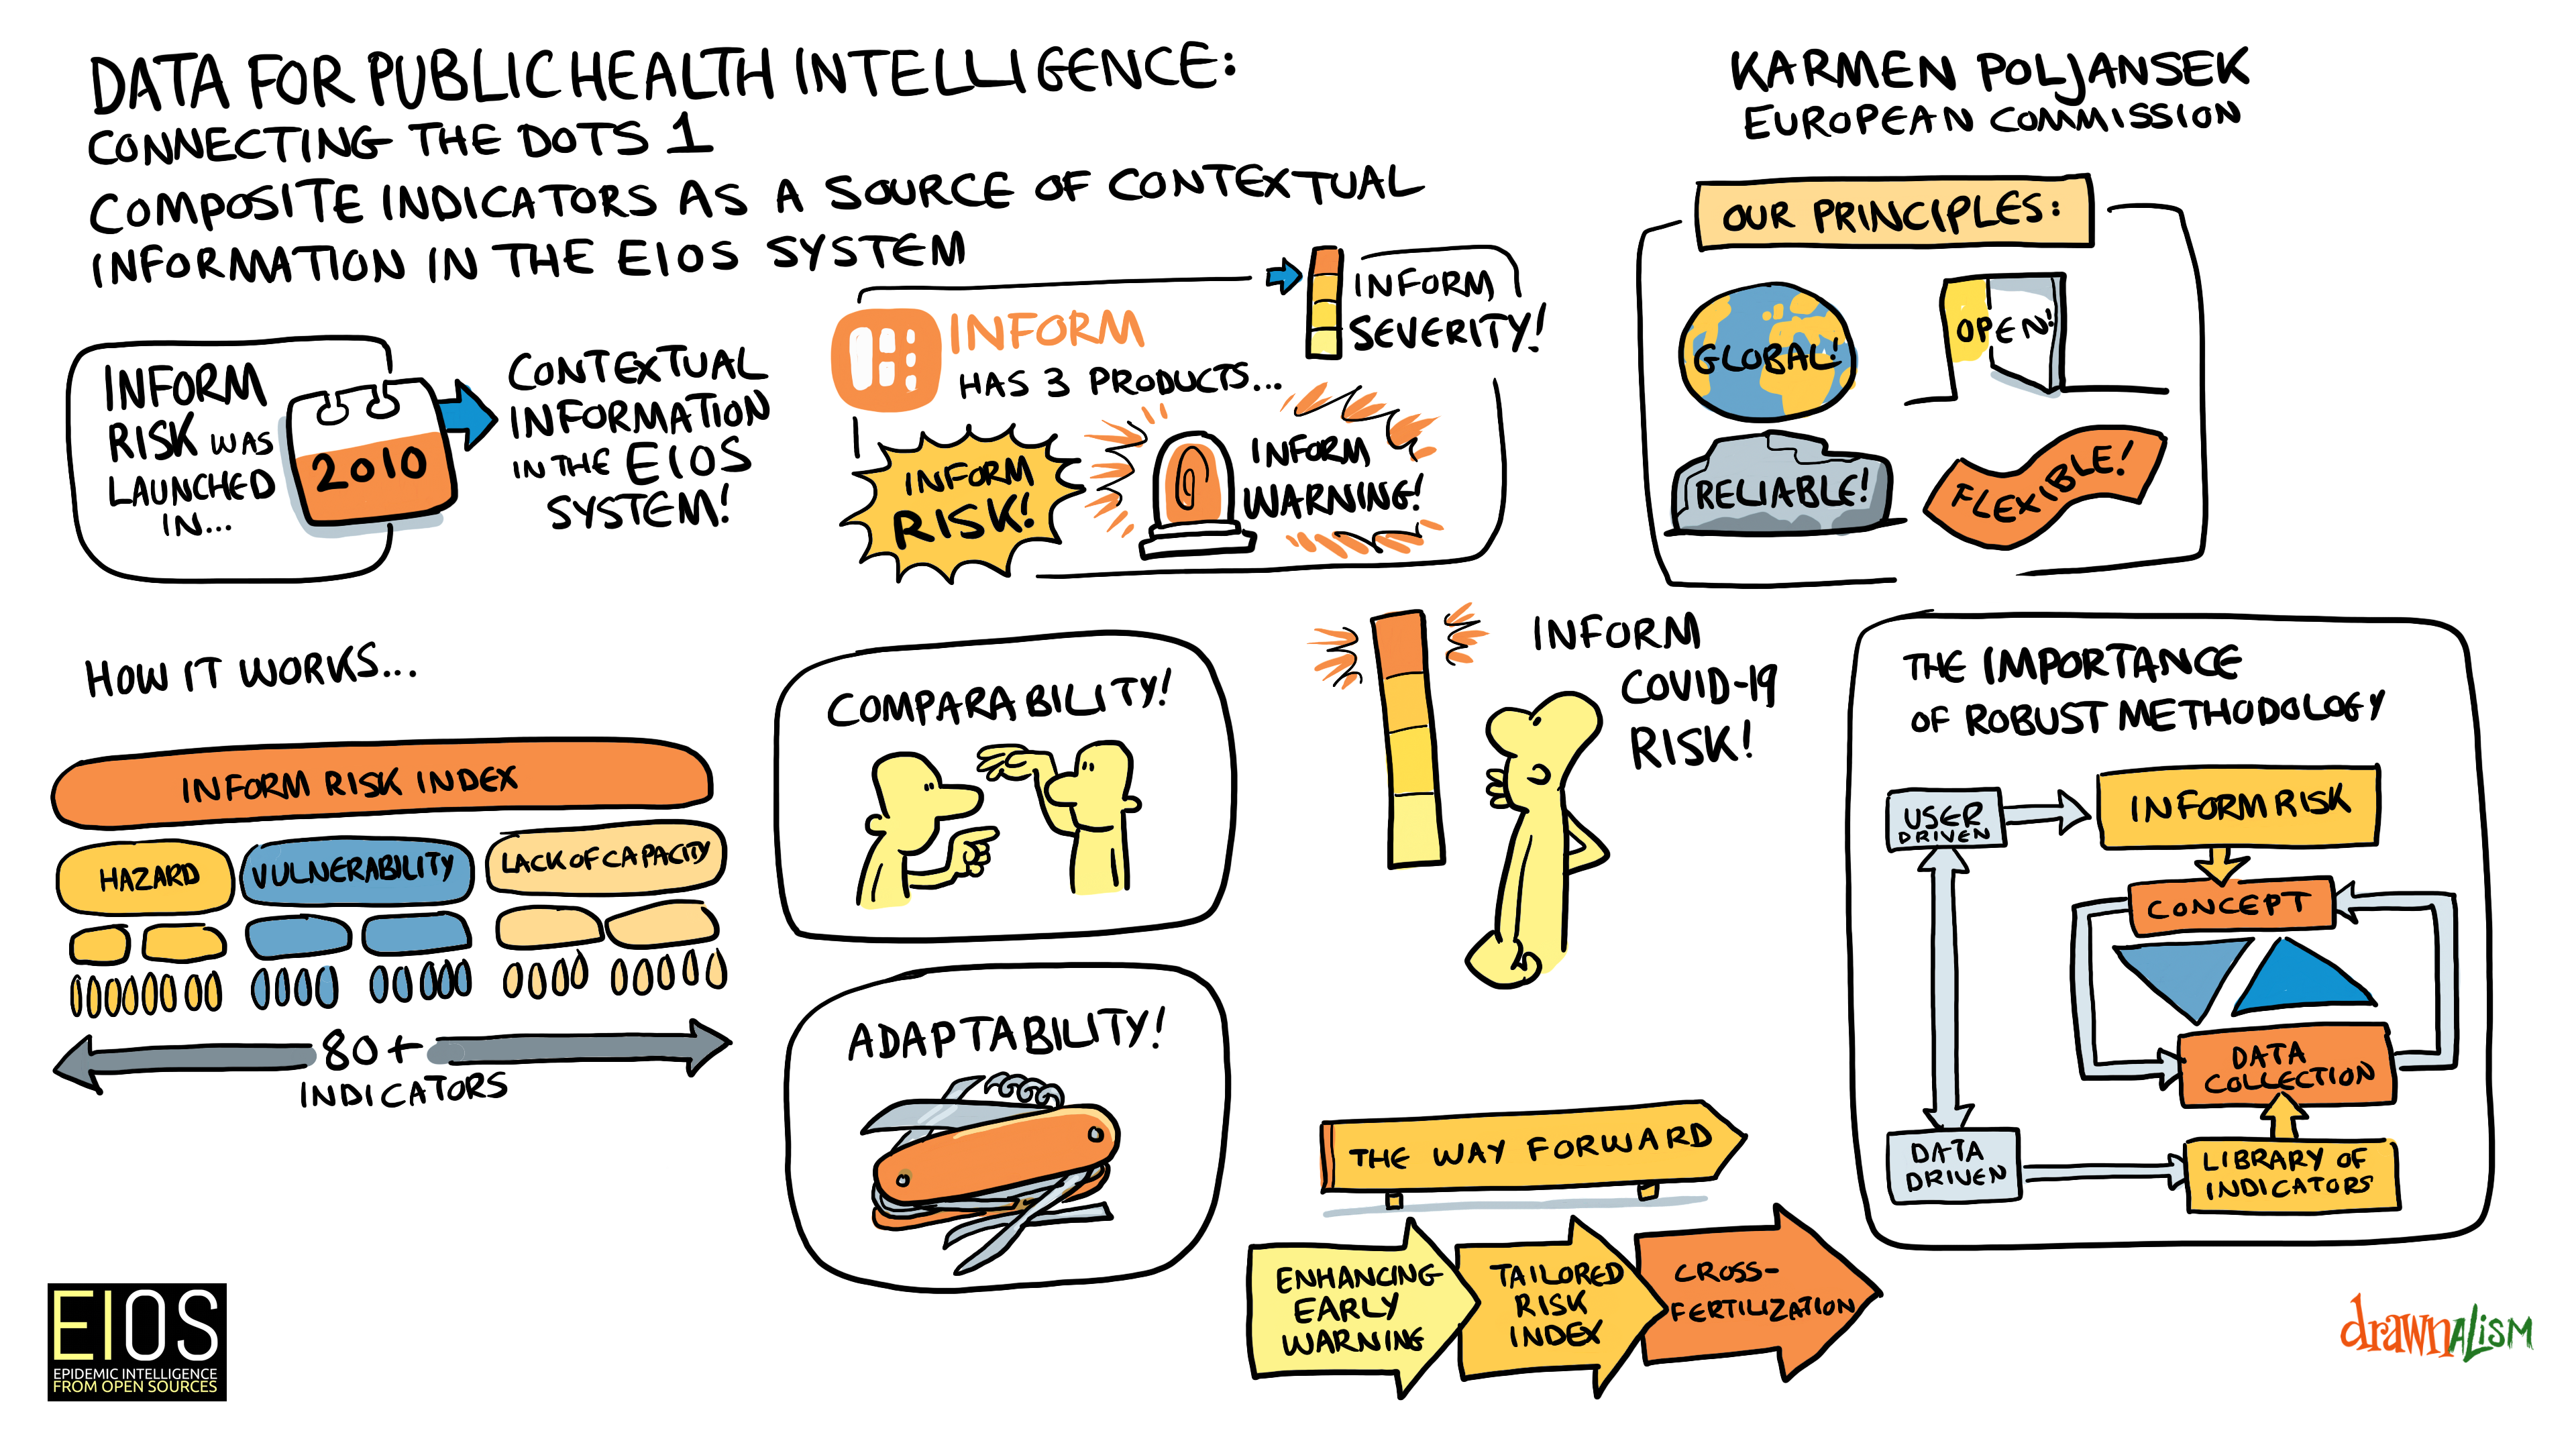 DATA FOR PUBLIC HEALTH INTELLIGENCE:
CONNECTING THE DOTS 1
COMPOSITE INDICATORS AS A SOURCE OF CONTEXTUAL
INFORMATION IN THE EIOS SYSTEM
KARMEN POLJANSEK
EUROPEAN COMMISSION
INFORM
RISK WAS
LAUNCHED
IN...
2010
CONTEXTUAL
INFORMATION
IN THE EIOS
SYSTEM!
INFORM
HAS 3 PRODUCTS...
INFORM
SEVERITY!
INFORM
RISK!
INFORM
WARNING!
OUR PRINCIPLES:
GLOBAL!
OPEN!
RELIABLE!
FLEXIBLE!
HOW IT WORKS...
INFORM RISK INDEX
HAZARD
VULNERABILITY
LACK OF CAPACITY
80+
INDICATORS
COMPARABILITY!
ADAPTABILITY!
INFORM
COVID-19
RISK!
THE WAY FORWARD
ENHANCING
EARLY
WARNING
TAILORED
RISK
INDEX
CROSS-
FERTILIZATION
THE IMPORTANCE
OF ROBUST METHODOLOGY
USER
DRIVEN
INFORM RISK
CONCEPT
DATA
COLLECTION
DATA
DRIVEN
LIBRARY OF
INDICATORS
EIOS
EPIDEMIC INTELLIGENCE
FROM OPEN SOURCES
drawnALiSM